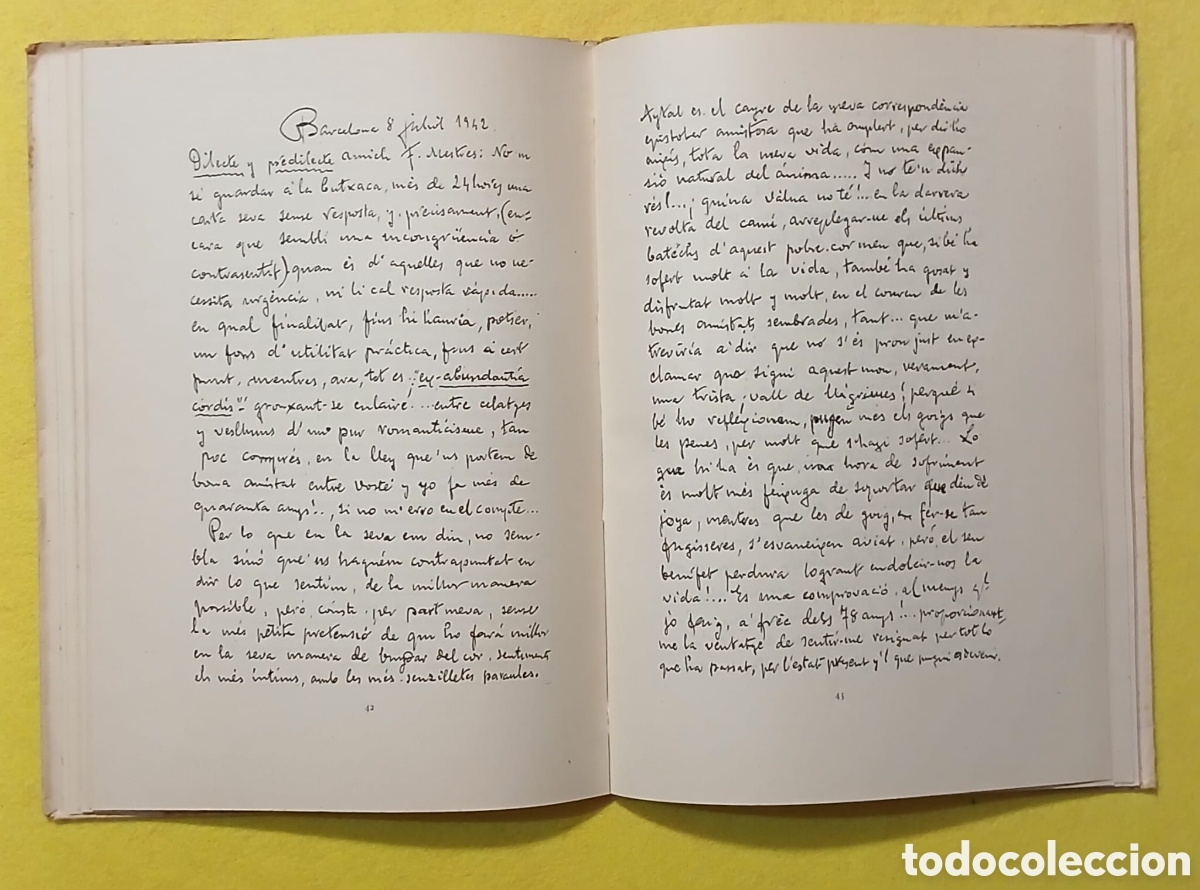 Barcelona 8 juliol 1942.
Dilecte y predilecte amich F. Mestres: No m
sé guardar á la butxaca, més de 24 hores una
carta seva sense resposta, y, precisament, (en-
cara que sembli una incongrüència ó
contrasentit) quan és d'aquelles que no ne-
cessita urgència, ni li cal resposta ràpida.....
en qual finalitat, fins hi hauria, potser,
un fons d'utilitat práctica, fins á cert
punt, mentres, ara, tot es: "ex-abundantia
cordis"! gronxant-se enlaire!...entre celatges
y vesllums d'un pur romanticisme, tan
poc comprés, en la lley que'us portem de
bona amistat entre vosté y yo fa més de
quaranta anys!.., si no m'erro en el compte...
Per lo que en la seva em diu, no sem-
bla sinó que'us haguém contrapuntat en
dir lo que sentim, de la millor manera
possible, peró, consta, per part meva, sense
la més petita pretensió de que ho fará millor
en la seva manera de brollar del cor, sentiments
els més íntims, amb les més senzilletes paraules.
42
Aytal es el cayre de la meva correspondència
epistoler amistosa que ha omplert, per dirho
aixís, tota la meva vida, com una expan-
sió natural del ánima..... I no te'n dich
rés!...¡quina válua no té!...en la darrera
revolta del camí, arreplegar-ne els últims
batéchs d'aquest pobre cor meu que, si bé ha
sofert molt á la vida, també ha gosat y
disfrutat molt y molt, en el conreu de les
bones amistats sembrades, tant... que m'a-
treviría a dir que no s'és prou just en ex-
clamar que sigui aquest mon, verament,
una trista vall de llágrimes! perqué si
bé ho reflexionem, pugen més els goigs que
les penes, per molt que s'hagi sofert... Lo
que hi ha és que, una hora de sofriment
és molt més feixuga de soportar que deu de
joya, mentres que les de goig, en fer-se tan
fugisseres, s'esvaneixen aviat, peró, el seu
benifet perdura logrant endolcir-nos la
vida!... És una comprovació, al menys q'
jo faig, a frèc dels 78 anys!... proporcionant
me la ventatge de sentir-me resignat per tot lo
que ha passat, per l'estat present y'l que pugui esdevenir.
43
todocoleccion